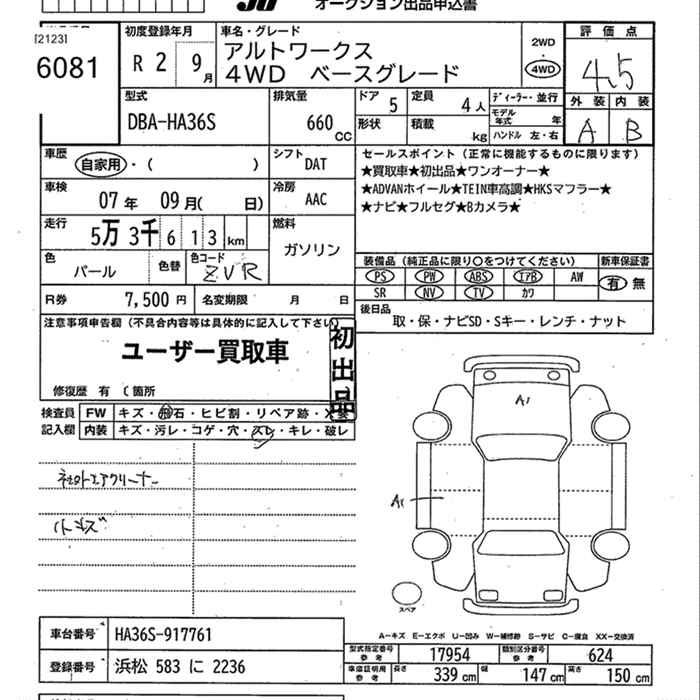 オークション出品申込書
[2123]
6081
初度登録年月
R 2 9月
車名・グレード
アルトワークス
4WD ベースグレード
2WD
4WD
評価点
4.5
外装 内装
A B
型式
DBA-HA36S
排気量
660 CC
ドア 5
定員 4人
形状
積載 kg
ディーラー・並行
モデル年式 年
ハンドル 左・右
車歴
自家用・( )
シフト
DAT
セールスポイント(正常に機能するものに限ります)
★買取車★初出品★ワンオーナー★
★ADVANホイール★TEIN車高調★HKSマフラー★
★ナビ★フルセグ★Bカメラ★
車検
07年 09月( 日)
冷房
AAC
走行
5万3千613km
燃料
ガソリン
色
パール
色替
色コード
ZVR
装備品(純正品に限り○をつけてください)
PS PW ABS エアB AW
SR NV TV カワ
新車保証書
有 無
R券 7,500円
名変期限 月 日
後日品
取・保・ナビSD・Sキー・レンチ・ナット
注意事項申告欄(不具合内容等は具体的に記入して下さい)
ユーザー買取車
初出品
修復歴 有(箇所
検査員記入欄
FW キズ・飛石・ヒビ割・リペア跡・
内装 キズ・汚レ・コゲ・穴・スレ・キレ・破レ
社外エアクリーナー
A1
A1
スペア
A-キズ E-エクボ U-凹み W-補修跡 S-サビ C-腐食 XX-交換済
車台番号 HA36S-917761
登録番号 浜松 583 に 2236
型式指定番号参考 17954
類別区分番号参考 624
車庫証明用参考
長さ 339 cm 幅 147 cm 高さ 150 cm